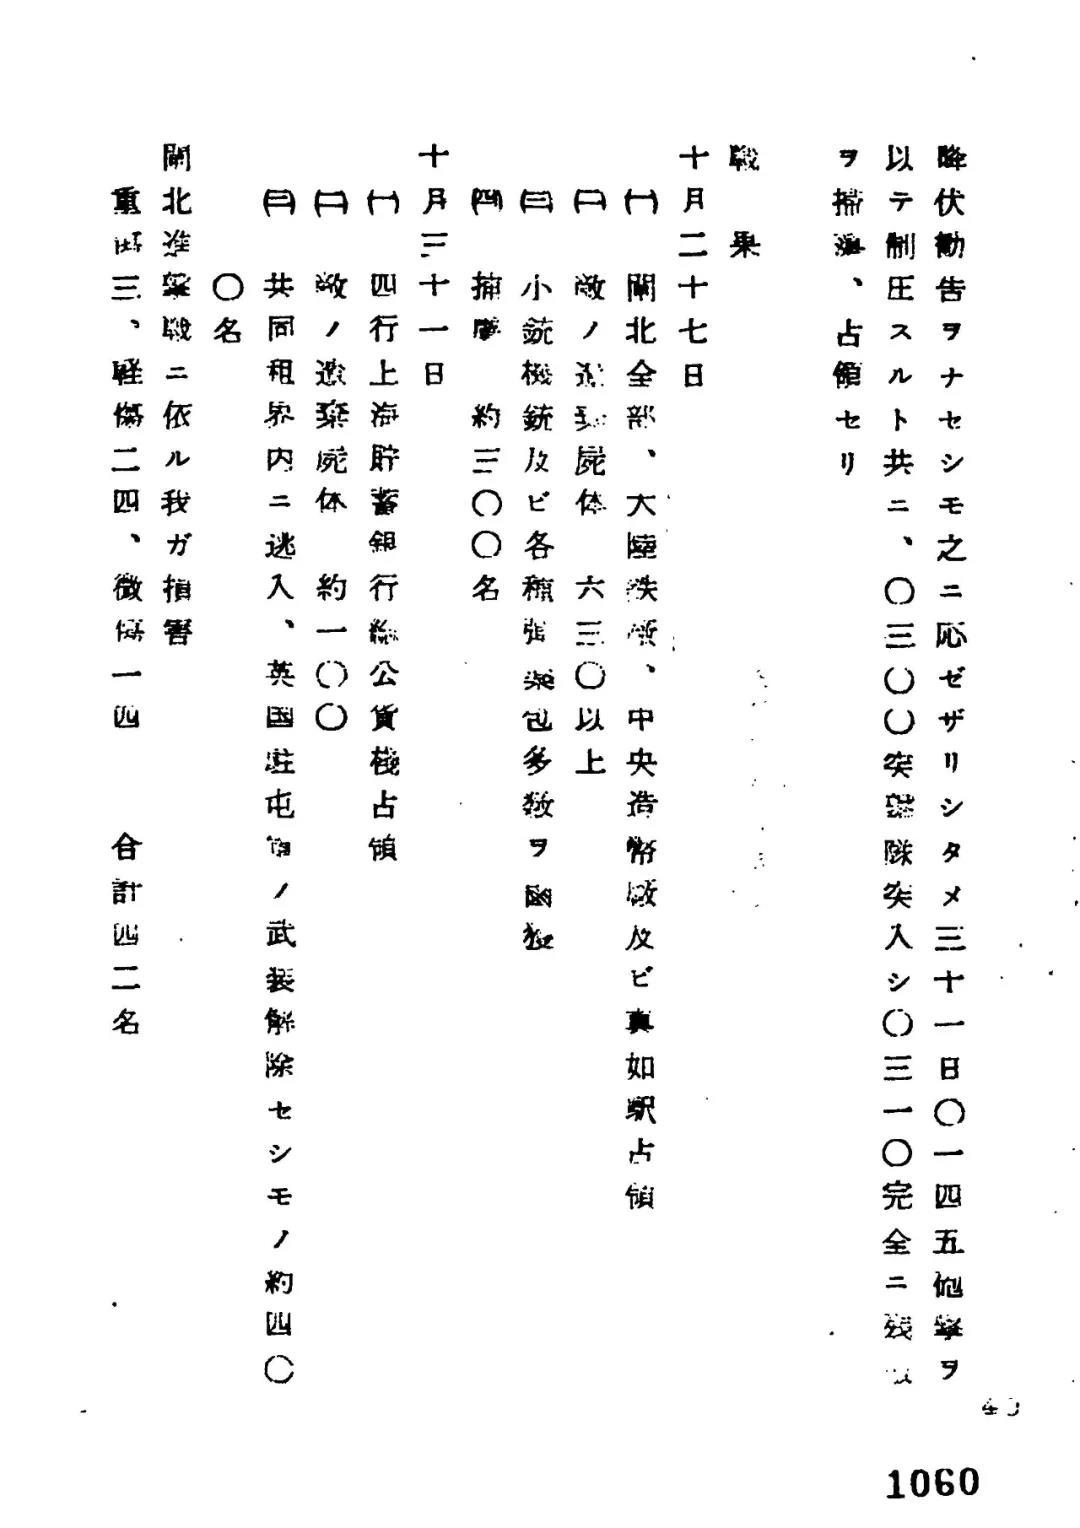 降伏勧告ヲナセシモ之ニ応ゼザリシタメ三十一日〇一四五砲撃ヲ
以テ制圧スルト共ニ、〇三〇〇突撃隊突入シ〇三一〇完全ニ残敵
ヲ掃蕩、占領セリ
戦果
十月二十七日
(一) 閘北全部、大陸鉄廠、中央造幣廠及ビ真如駅占領
(二) 敵ノ遺棄屍体 六三〇以上
(三) 小銃機銃及ビ各種弾薬包多数ヲ鹵獲
(四) 捕虜 約三〇〇名
十月三十一日
(一) 四行上海貯蓄銀行総公貨棧占領
(二) 敵ノ遺棄屍体 約一〇〇
(三) 共同租界内ニ逃入、英国駐屯軍ノ武装解除セシモノ約四〇
〇名
閘北進撃戦ニ依ル我ガ損害
重傷三、軽傷二四、微傷一四 合計四二名
1060